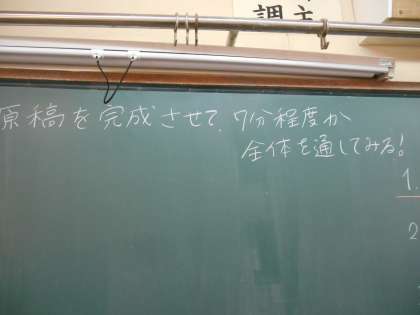 調主
原稿を完成させて、7分程度か
全体を通してみる!
1.
2